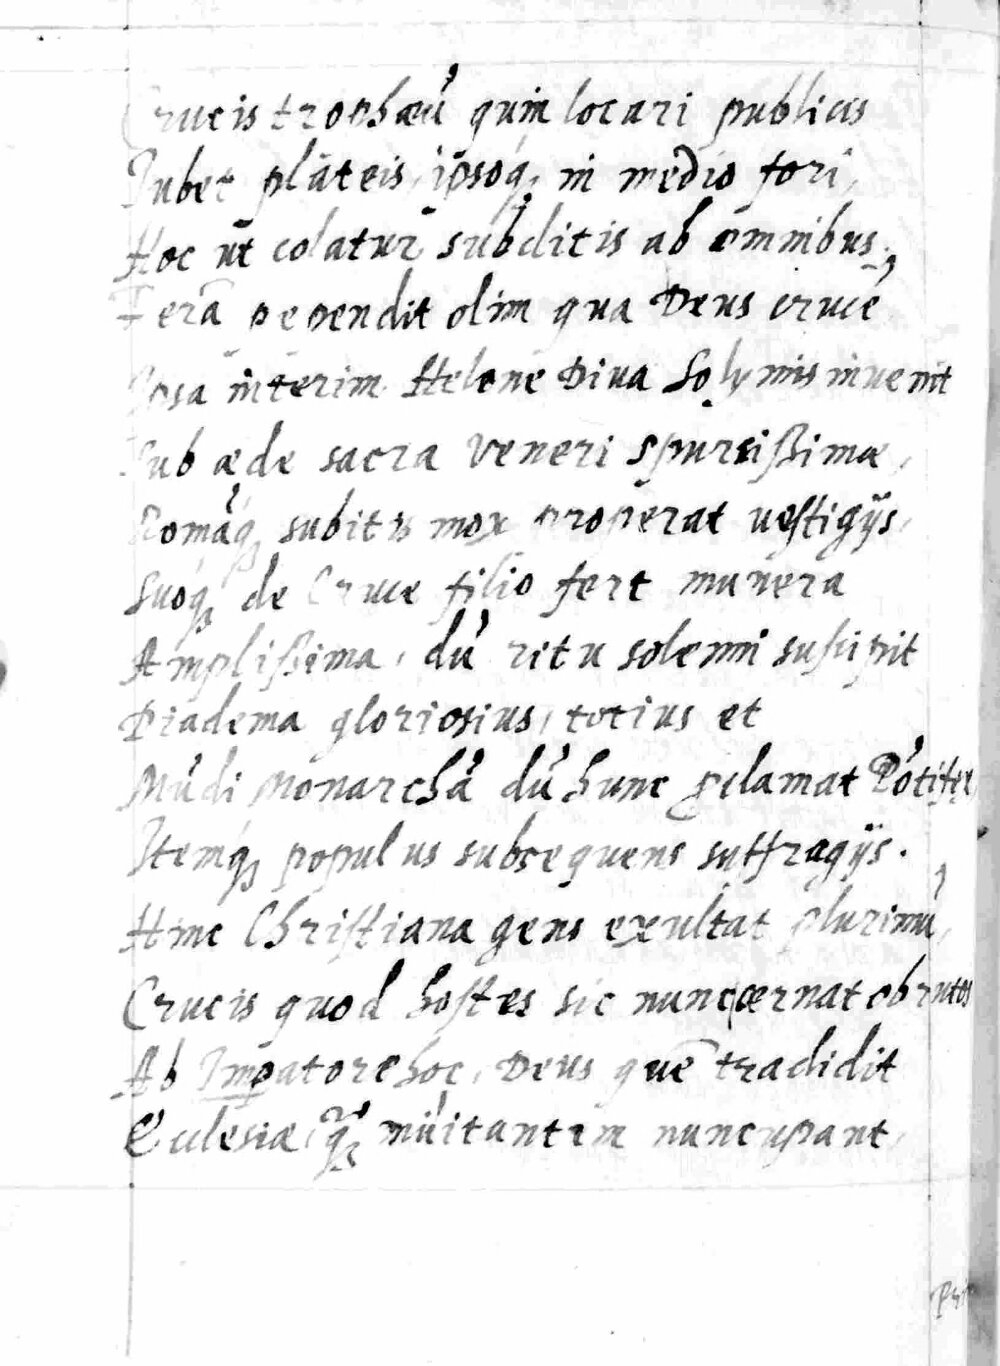 Crucis trophæū quin locari publicis
Iubet plateis, ipsoq; in medio fori,
Hoc ut colatur subditis ab omnibus,
Ferā pependit olim qua Deus crucē
Ipsa interim Helene Diua Solymis inuenit
Sub æde sacra Veneri spurcißimæ,
Romāq; subitis mox properat uestigijs,
Suoq; de Cruce filio fert munera
Amplißima, dū ritu solenni suscipit
Diadema gloriosius, totius et
Mūdi Monarchā dū hunc pclamat Pōtifex
Itemq; populus subsequens suffragijs.
Hinc Christiana gens exultat plurimū,
Crucis quod hostes sic nunc cernat obrutos
Ab Impatore hoc, Deus quē tradidit
Ecclesiæ, q; mūitantem nuncupant,